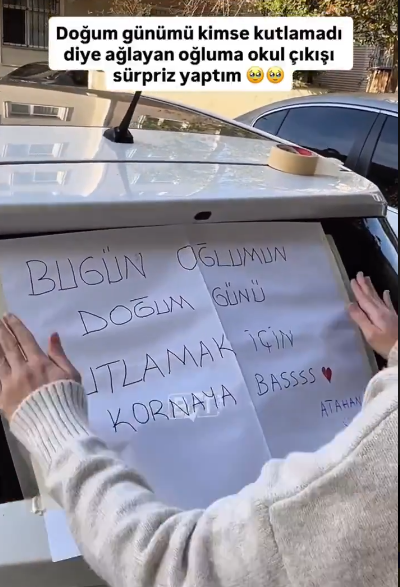 Doğum günümü kimse kutlamadı
diye ağlayan oğluma okul çıkışı
sürpriz yaptım 🥹🥹
BUGÜN OĞLUMUN
DOĞUM GÜNÜ
UTLAMAK İÇİN
KORNAYA BASSSS ♥
ATAHAN